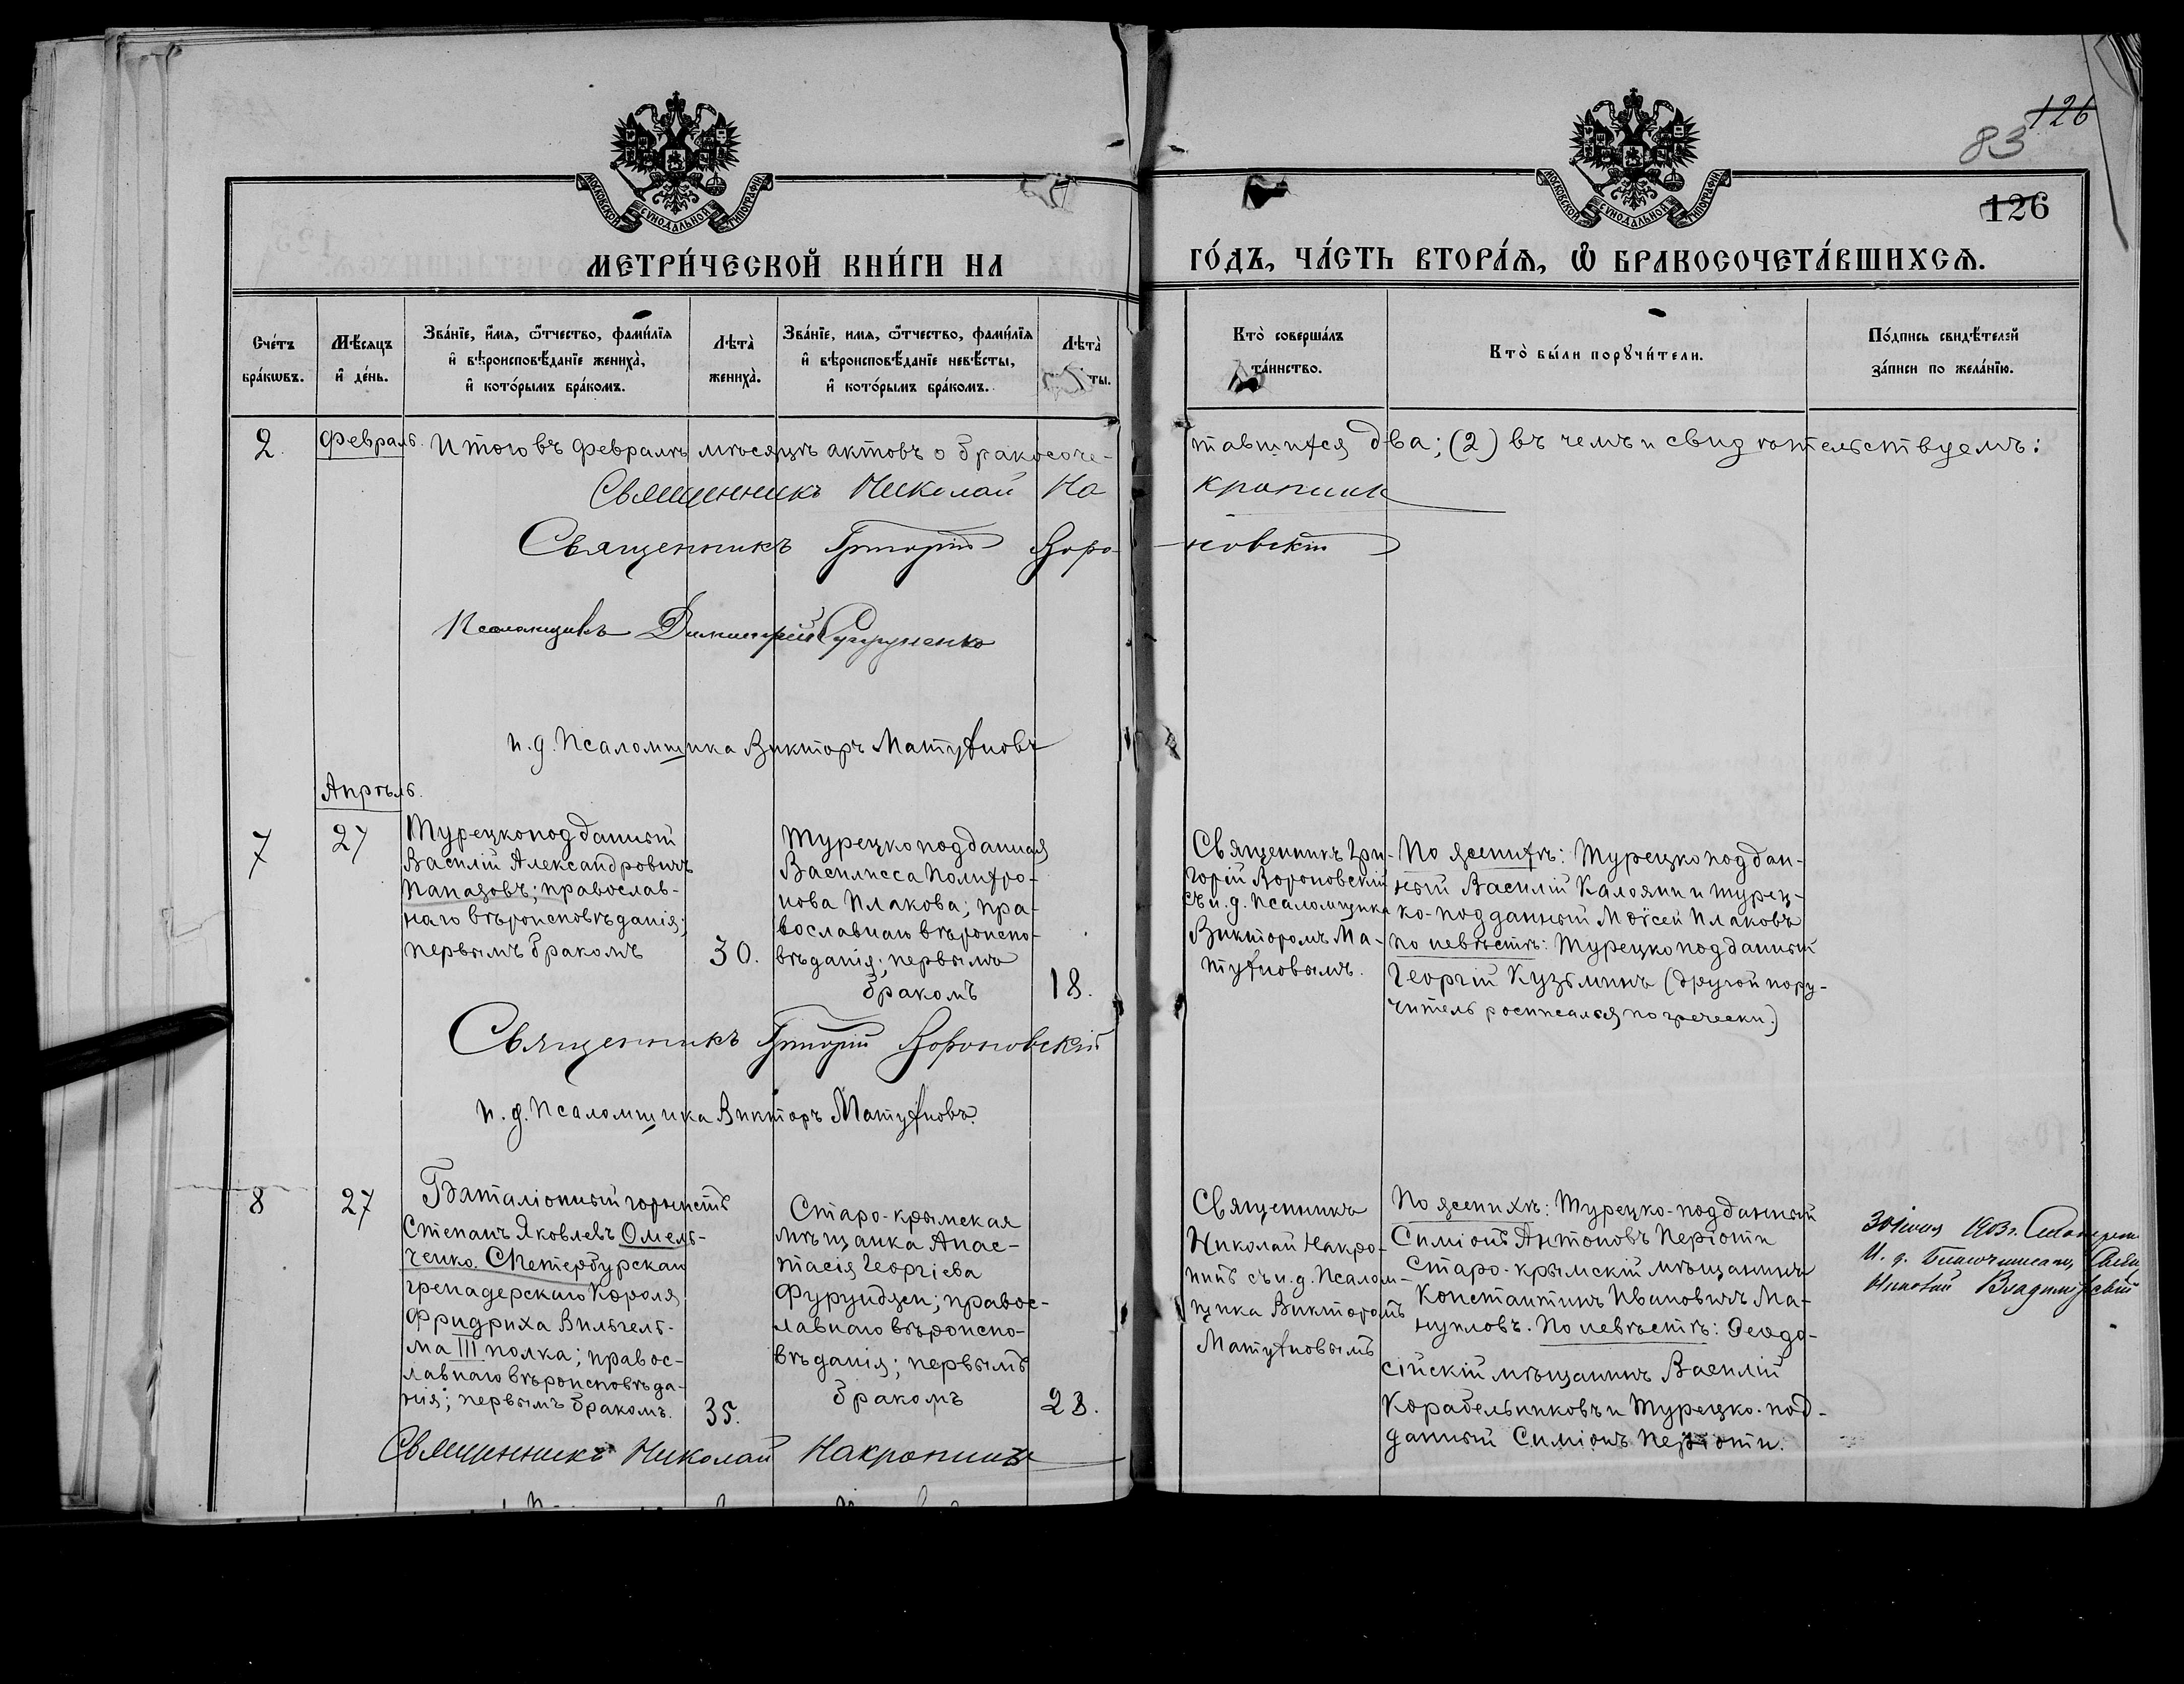 126
83
МОСКОВСКОЙ СѴНОДАЛЬНОЙ ТИПОГРАФІИ
МОСКОВСКОЙ СѴНОДАЛЬНОЙ ТИПОГРАФІИ
126
МЕТРИ́ЧЕСКОЙ КНИ́ГИ НА ГО́ДЪ, ЧА́СТЬ ВТОРА́Ѧ, Ѽ БРАКОСОЧЕТА́ВШИХСѦ.
Сче́тъ бра́кѡвъ.
Мѣ́сяцъ и҆ де́нь.
Зва́нїе, и҆́мя, ѻ҆́тчество, фамилїя
и҆ вѣроисповѣ́данїе жениха̀,
и҆ кото́рымъ бра́комъ.
Лѣта̀ жениха̀.
Зва́нїе, имя, ѻ҆́тчество, фамилїя
и҆ вѣроисповѣ́данїе невѣ́сты,
и҆ кото́рымъ бра́комъ.
Лѣта̀
ты.
Кто̀ соверша́лъ
та́инство.
Кто̀ бы́ли порꙋчи́тели.
По́дпись свидѣ́телей
за́писи по жела́нїю.
2. Февраль. Итого въ Февралѣ мѣсяцѣ актовъ о бракосоче-
тавшихся два; (2) въ чемъ и свидѣтельствуемъ:
Священникъ Николай Накропинъ
Священникъ Григорій Вороновскій
Псаломщикъ Димитрій
и. д. Псаломщика Викторъ Матуфновъ
Апрѣль.
7
27
Турецкоподданный
Василій Александровичъ
Папазовъ; православ-
наго вѣроисповѣданія;
первымъ бракомъ
30.
Турецкоподданная
Василисса Полихро-
нова Плакова; пра-
вославнаго вѣроиспо-
вѣданія; первымъ
бракомъ
18.
Священникъ Гри-
горій Вороновскій
съ и. д. Псаломщика
Викторомъ Ма-
туфновымъ.
По женихѣ: Турецкоподдан-
ный Василій Калояни и турец-
ко-подданный Моѵсей Плаковъ
по невѣстѣ: Турецкоподданный
Георгій Кузьминъ (другой пору-
читель росписался по гречески.)
Священникъ Григорій Вороновскій
и. д. Псаломщика Викторъ Матуфновъ.
8
27
Баталіонный горнистъ
Степанъ Яковлевъ Омель-
ченко. СПетербурскаго
гренадерскаго Короля
Фридриха Вильгель-
ма III полка; правос-
лавнаго вѣроисповѣда-
нія; первымъ бракомъ.
35.
Старо-крымская
мѣщанка Анас-
тасія Георгіева
Фурунджи; правос-
лавнаго вѣроиспо-
вѣданія; первымъ
бракомъ
23.
Священникъ
Николай Накро-
пинъ съ и. д. Псалом-
щика Викторомъ
Матуфновымъ
По женихѣ: Турецко-подданный
Симіонъ Антоновъ Періоти
Старо-крымскій мѣщанинъ
Константинъ Ивановичъ Ма-
нуиловъ. По невѣстѣ: Ѳеодо-
сійскій мѣщанинъ Василій
Корабельниковъ и Турецко-под-
данный Симіонъ Періоти.
1903 г.
И. д.
Николай Владимірскій
Священникъ Николай Накропинъ